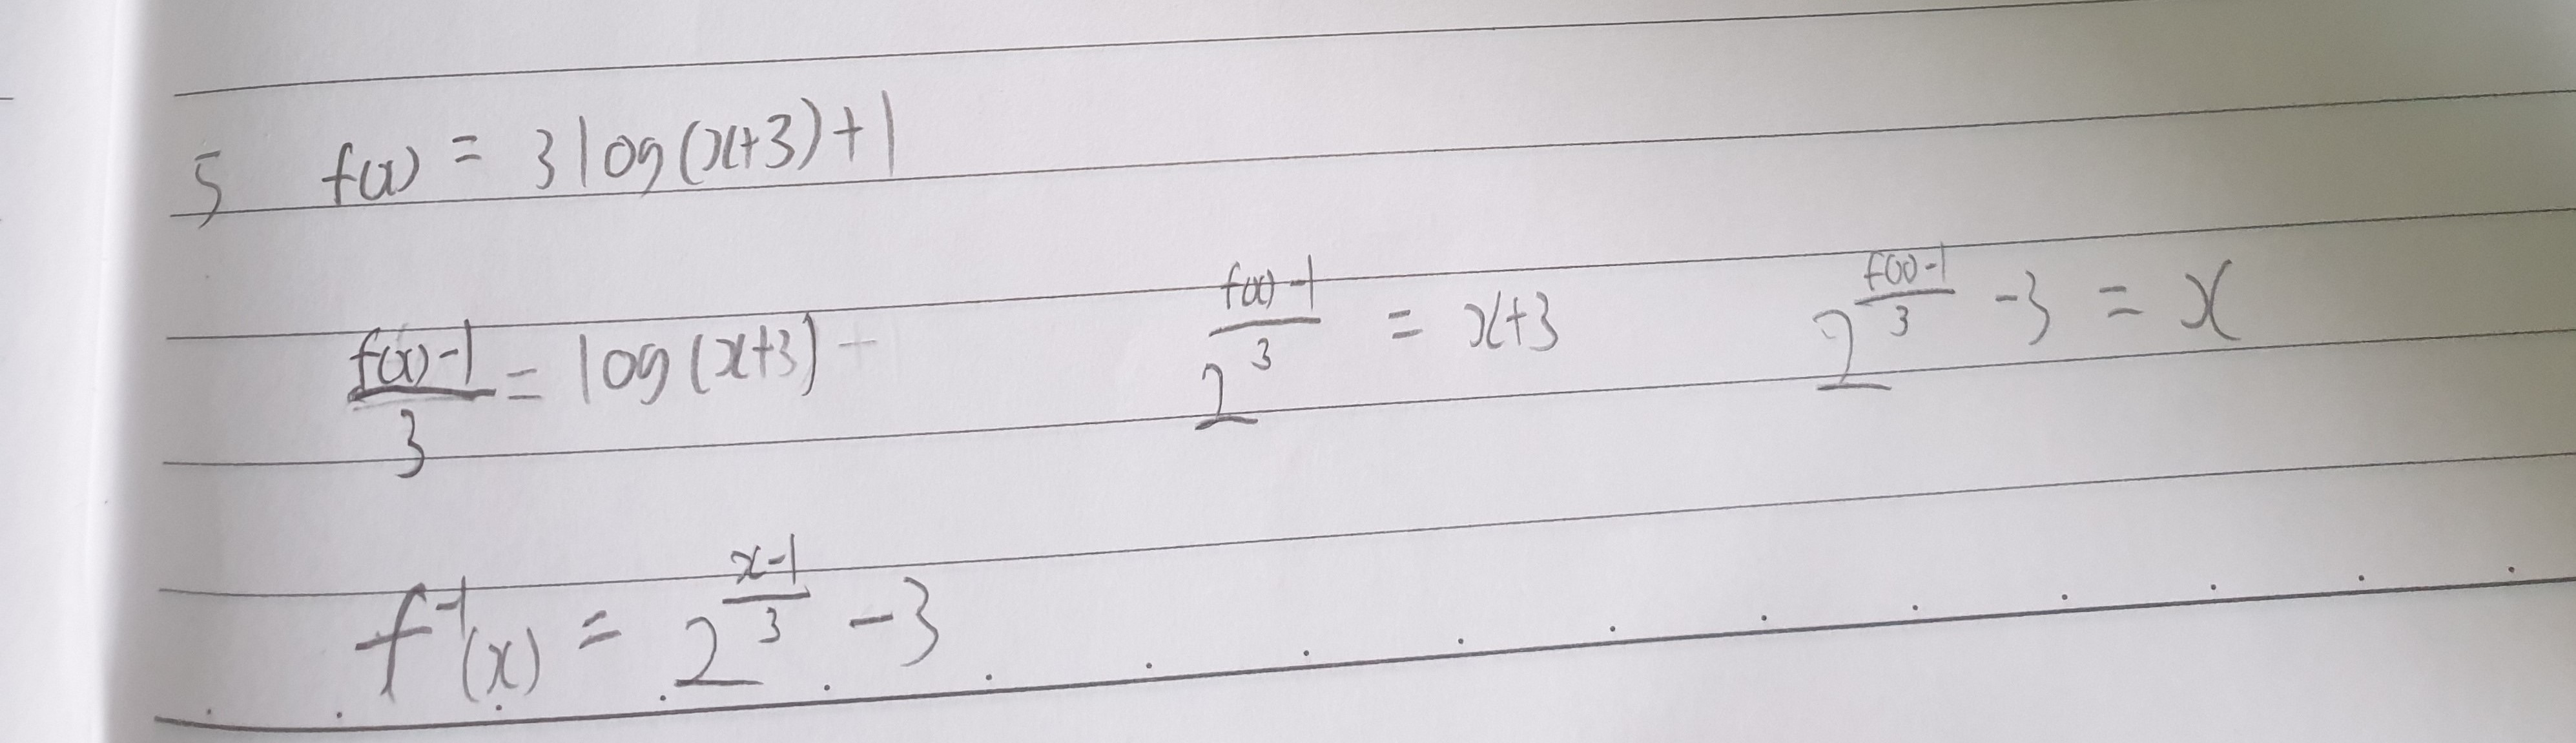 5 f(x) = 3 log(x+3)+1
(f(x)-1)/3 = log(x+3) 2^((f(x)-1)/3) = x+3 2^((f(x)-1)/3) -3 = x
f^-1(x) = 2^((x-1)/3) -3